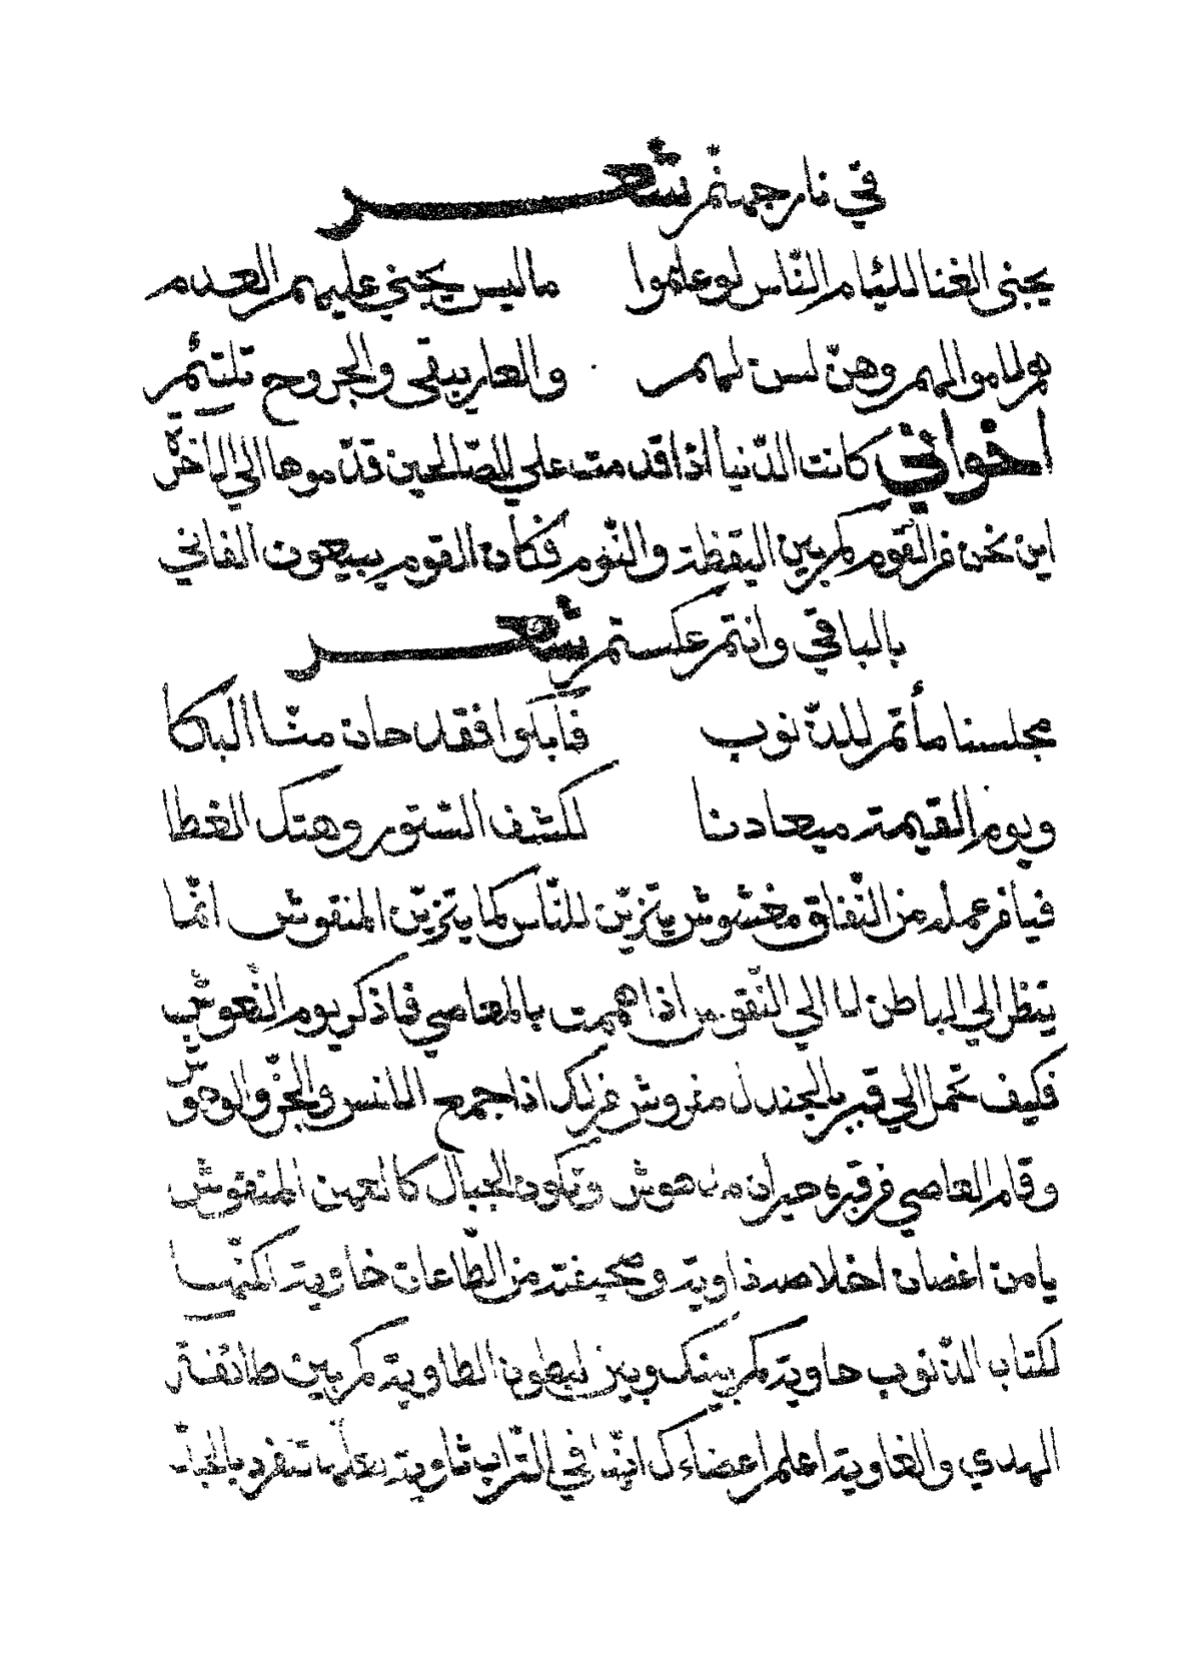 في نار جهنم شعر
يجنى الغنا للئام الناس لو علموا ما ليس يجني عليهم العدم
هم لاموالهم وهن لسن لهم والعار يبقى والجروح تلتئم
اخواني كانت الدنيا اذا قدمت علي الصالحين قدموها الي الاخرة
اين نحن من القوم كم بين اليقظة والنوم فكان القوم يبيعون الفاني
بالباقي وانتم عكستم شعر
مجلسنا مأتم للذنوب فابكوا فقد حان منا البكا
ويوم القيمة ميعادنا لكشف الستور وهتك الغطا
فيا من عمله من النفاق مغشوش يتزين للناس كما يتزين المنقوش انما
ينظر الي الباطن لا الي النقوش اذا هممت بالمعاصي فاذكر يوم النعوش
فكيف تحمل الي قبر بالجندل مفروش من لك اذا جمع الانس والجن والوحوش
وقام العاصي من قبره حيران مدهوش وتكون الجبال كالعهن المنفوش
يا من اغصان اخلاصه ذاوية وصحيفته من الطاعات خاوية لكنها
لكتاب الذنوب حاوية كم بينك وبين البطون الطاوية كم بين طائفة
الهدي والغاوية اعلم اعضاءك انها في التراب ثاوية لعلها تنفرد بالجد